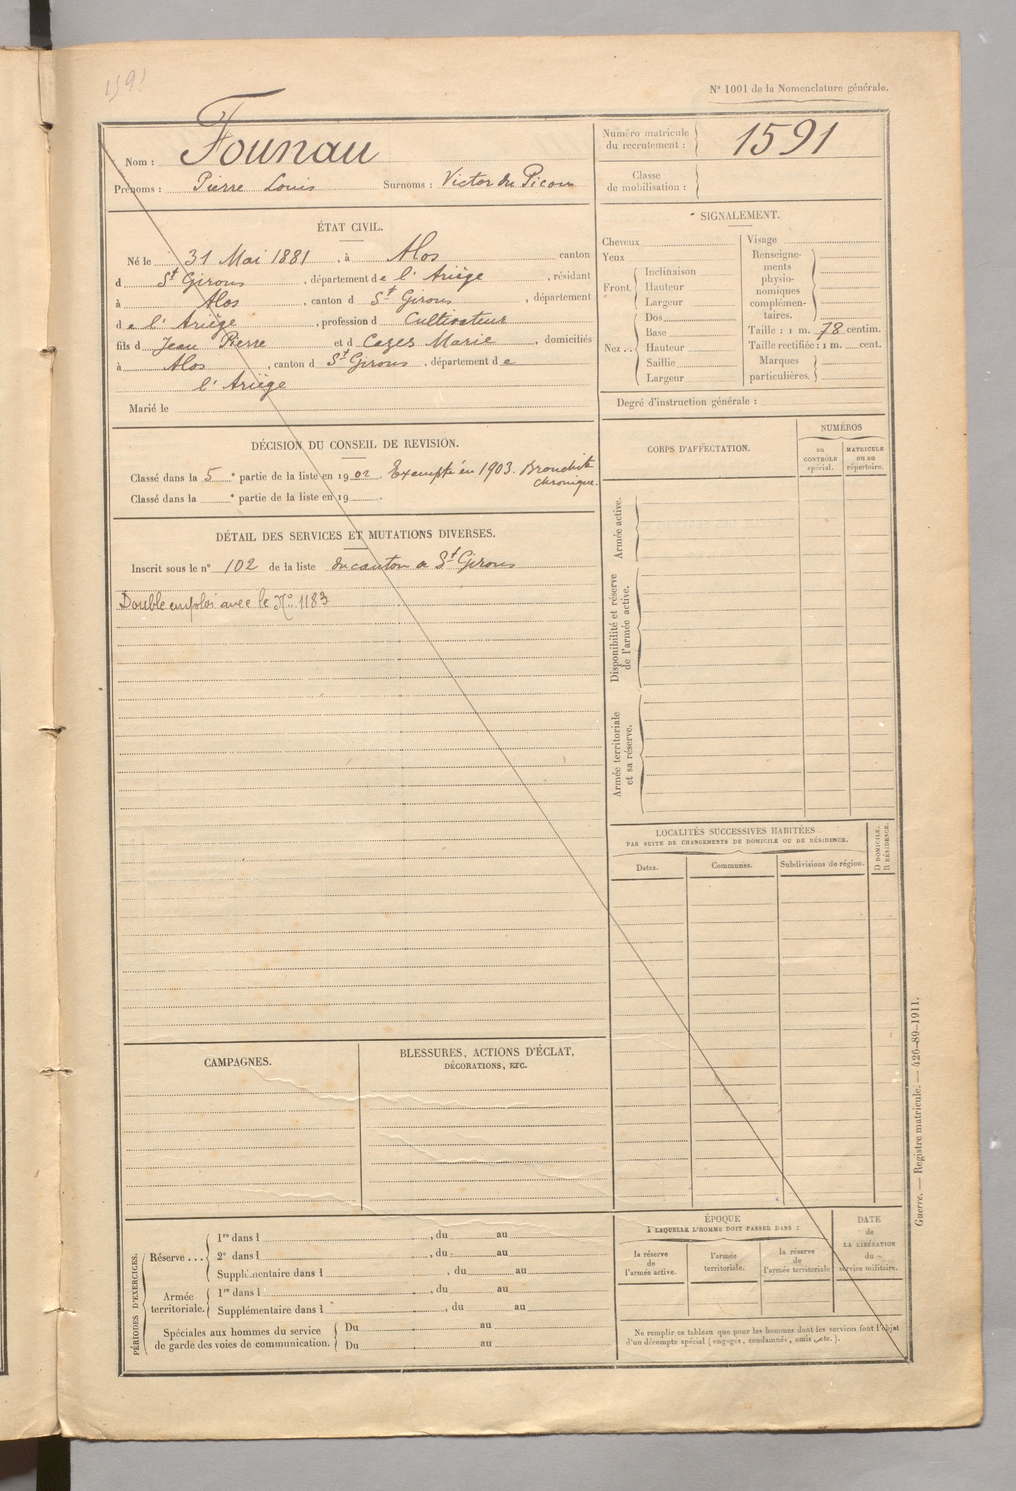 1591
N° 1001 de la Nomenclature générale.
Nom : Founau
Prénoms : Pierre Louis Surnoms : Victor du Picou
Numéro matricule du recrutement : 1591
Classe de mobilisation :
ÉTAT CIVIL.
Né le 31 Mai 1881, à Alos canton
d St Girons, département de l'Ariège, résidant
à Alos, canton d St Girons, département
de l'Ariège, profession d Cultivateur
fils d Jean Pierre et d Cazes Marie, domiciliés
à Alos, canton d St Girons, département de
l'Ariège
Marié le
SIGNALEMENT.
Cheveux
Yeux
Front. Inclinaison
Hauteur
Largeur
Nez .. Dos
Base
Hauteur
Saillie
Largeur
Visage
Renseignements physionomiques complémentaires.
Taille : 1 m. 78 centim.
Taille rectifiée : 1 m. cent.
Marques particulières.
Degré d'instruction générale :
DÉCISION DU CONSEIL DE REVISION.
Classé dans la 5e partie de la liste en 1902. Exempté en 1903. Bronchite
chronique.
Classé dans la e partie de la liste en 19 .
DÉTAIL DES SERVICES ET MUTATIONS DIVERSES.
Inscrit sous le n° 102 de la liste du canton de St Girons
Double emploi avec le No 1183
CORPS D'AFFECTATION.
NUMÉROS
au CONTRÔLE spécial.
MATRICULE ou au répertoire.
Armée active.
Disponibilité et réserve de l'armée active.
Armée territoriale et sa réserve.
LOCALITÉS SUCCESSIVES HABITÉES
PAR SUITE DE CHANGEMENTS DE DOMICILE OU DE RÉSIDENCE.
Dates.
Communes.
Subdivisions de région.
D DOMICILE. R RÉSIDENCE.
CAMPAGNES.
BLESSURES, ACTIONS D'ÉCLAT,
DÉCORATIONS, ETC.
PÉRIODES D'EXERCICES.
Réserve ... 1re dans l , du au
2e dans l , du au
Supplémentaire dans l , du au
Armée territoriale. 1re dans l , du au
Supplémentaire dans l , du au
Spéciales aux hommes du service
de garde des voies de communication.
Du au
Du au
ÉPOQUE
À LAQUELLE L'HOMME DOIT PASSER DANS :
la réserve de l'armée active.
l'armée territoriale.
la réserve de l'armée territoriale
DATE de LA LIBÉRATION du service militaire.
Ne remplir ce tableau que pour les hommes dont les services font l'objet
d'un décompte spécial (engagés, condamnés, omis, etc.).
Guerre. — Registre matricule. — 426-89-1911.